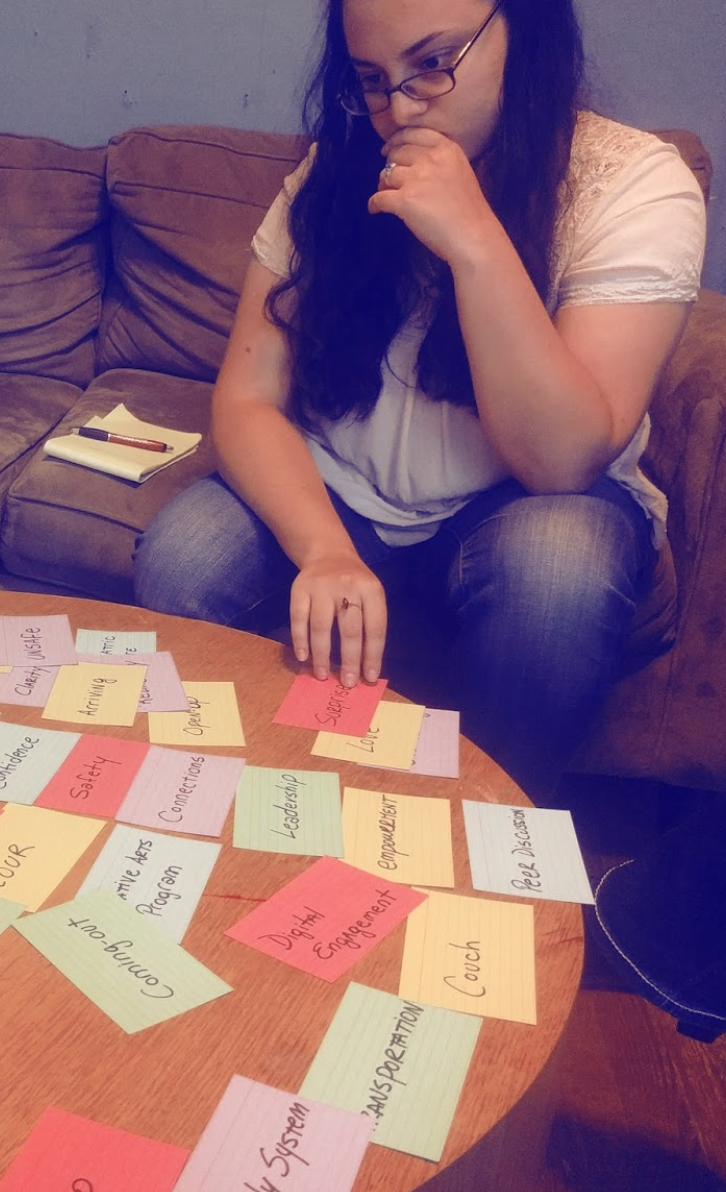 Clarity
UNSAFE
Arriving
Open-up
Surprise
Love
Confidence
Safety
Connections
Leadership
empowerment
Peer Discussion
OUR
ative Arts
Program
Coming-out
Digital
Engagement
Couch
RANSPORTATION
ly System